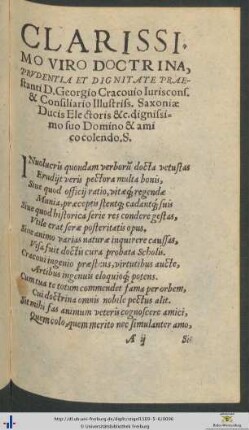 CLARISSI-
MO VIRO DOCTRINA,
PRVDENTIA ET DIGNITATE PRAE-
stanti D. Georgio Cracouio Iuriscons.
& Consiliario Illustriss. Saxoniæ
Ducis Electoris &c. dignissi-
mo suo Domino & ami
co colendo. S.
INuolucris quondam verborũ docta vetustas
Erudijt veri pectora multa bonis,
Siue quod officij ratio, vitæq; regendæ
Mania, præceptis stentq; cadentq; suis
Siue quod historica serie res condere gestas,
Vtile erat seræ posteritatis opus,
Siue animo varias naturæ inquirere caussas,
Visa fuit doctis cura probata Scholis.
Cracoui ingenio præstans, virtutibus aucte,
Artibus ingenuis eloquioq; potens.
Cum tua te totum commendet fama per orbem,
Cui doctrina omnis nobile pectus alit.
Sit mihi fas animum veteris cognoscere amici,
Quem colo, quem merito nec simulanter amo,
A ij
Sic